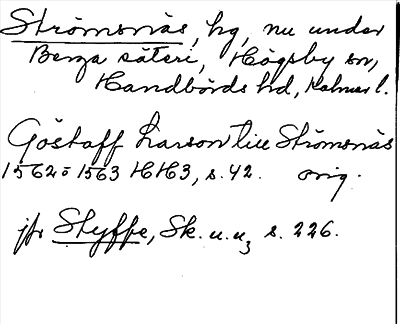 Strömsnäs, hg, nu under
Berga säteri, Högsby sn,
Handbörds hd, Kalmar l.
Göstaff Larson till Strömsnäs
1562 o 1563 HH3, s. 42. orig.
jfr Styffe, Sk. u. u, s. 226.